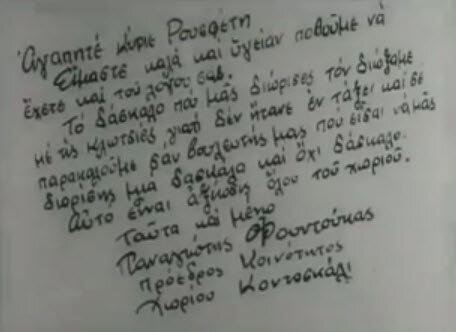 Ἀγαπητέ κύριε Ρουσφέτη
Εἴμαστέ καλά καί ὑγείαν ποθοῦμε νά
ἔχετε καί τοῦ λόγου σας.
Τό δάσκαλο πού μᾶς διώρισες τόν διώξαμε
μέ τίς κλωτσιές γιατί δέν ἤτανε ἐν τάξει καί σέ
παρακαλοῦμε σάν βουλευτής μας πού εἶσαι νά μᾶς
διορίσης μια δασκάλα καί ὄχι δάσκαλο.
Αὐτο εἶναι ἀξίωσης ὅλου τοῦ χωριοῦ.
Ταῦτα καί μένω
Παναγιώτης Φουντούκας
Πρόεδρος Κοινότητος
Χωρίου Κοντοσκάλι